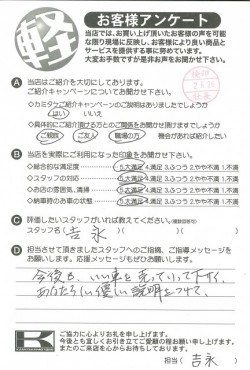 軽
お客様アンケート
当店では、お買い上げ頂いたお客様の声を可能
な限り現場に反映し、お客様により良い商品と
サービスを提供する事に努めています。
大変お手数ですが是非お声をお聞かせ下さい。
A 当店はご紹介を大切にしております。
ご紹介キャンペーンについてお聞かせ下さい。
◇カミタケご紹介キャンペーンのご説明はありましたでしょうか
はい いいえ
◇具体的にご紹介頂ける方とのご関係をお聞かせ頂けますでしょうか
ご親戚 ご友人 職場の方 機会があれば紹介したい
B 当店を実際にご利用になった印象をお聞かせ下さい。
◇総合的な満足度 5.大満足 4.満足 3.ふつう 2.やや不満 1.不満
◇スタッフの対応 5.大満足 4.満足 3.ふつう 2.やや不満 1.不満
◇お店の雰囲気、清掃 5.大満足 4.満足 3.ふつう 2.やや不満 1.不満
◇納車時のお車の状態 5.大満足 4.満足 3.ふつう 2.やや不満 1.不満
C 評価したいスタッフがいれば教えてください。
スタッフ名(吉永)
D 担当させて頂きましたスタッフへのご指摘、ご指導メッセージを
お願いします。応援メッセージもぜひお願いします。
今後も、いい車を売っていって下さい。
あたらしい優しい説明をつけて、
K
ご協力に心よりお礼を申し上げます。
今後とも宜しくお引き立てご愛顧の程お願い申し上げます。
またのご来店を心からお待ちしております。
担当(吉永)